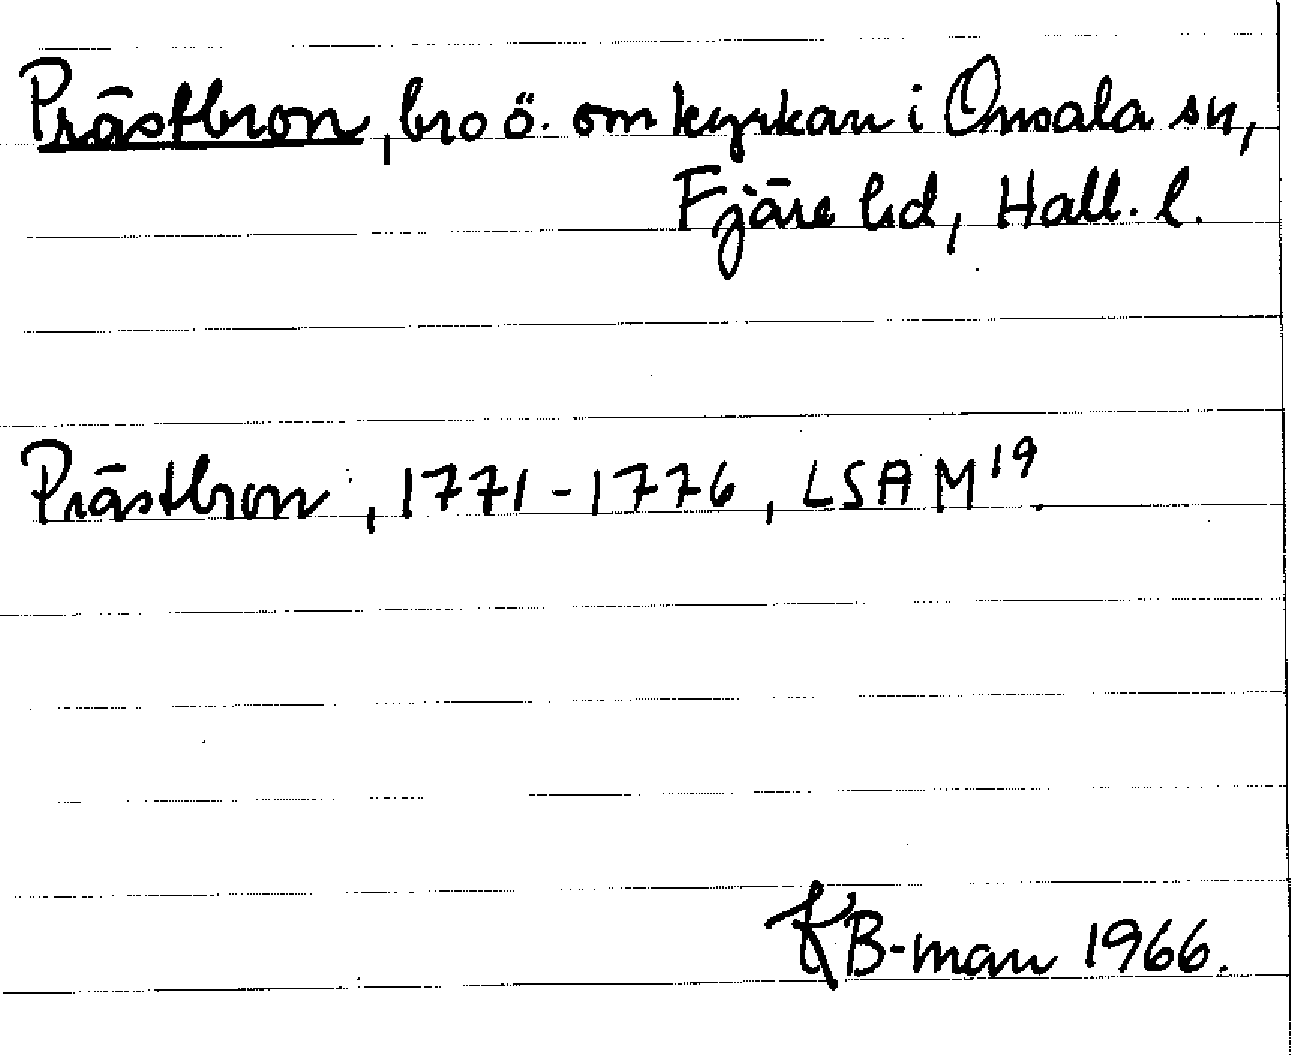 Prästbron, bro ö. om kyrkan i Onsala sn,
Fjäre hd, Hall. l.
Prästbron, 1771-1776, LSA M19
KB-man 1966.